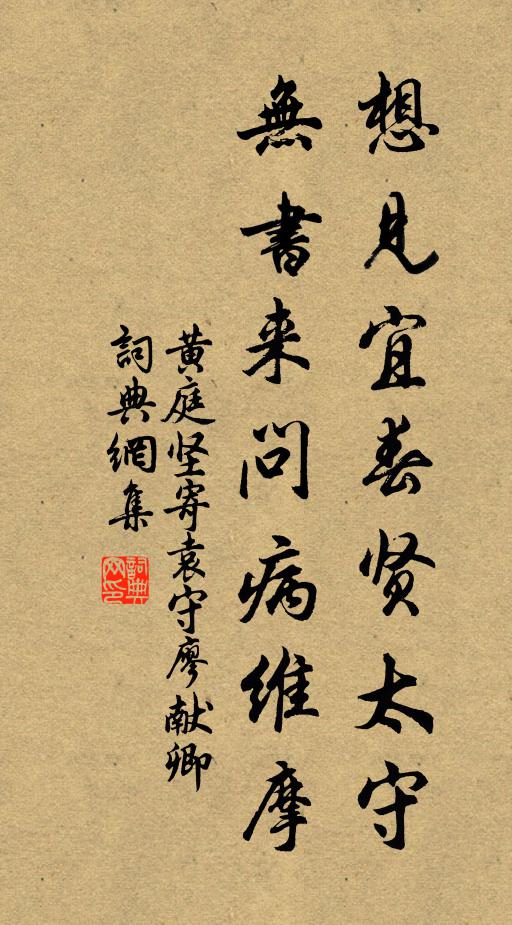 想見宜春贤太守
無書来問病维摩
黄庭坚寄袁守廖献卿
詞典網集
詞典網印